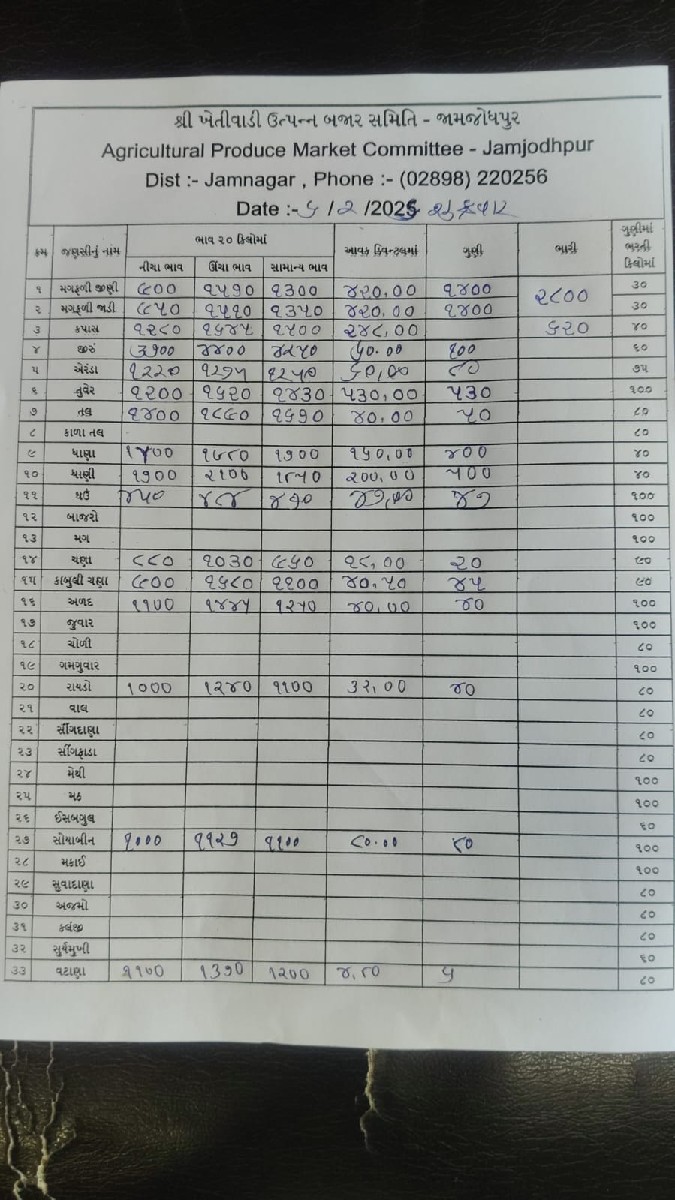 શ્રી ખેતીવાડી ઉત્પન્ન બજાર સમિતિ - જામજોધપુર
Agricultural Produce Market Committee - Jamjodhpur
Dist :- Jamnagar , Phone :- (02898) 220256
Date :- ૬/૨/2026 શુક્રવાર
ક્રમ જણસીનું નામ ભાવ ૨૦ કિલોમાં આવક ક્વિન્ટલમાં ગુણી ભારી ગુણીમાં ભરતી કિલોમાં
નીચા ભાવ ઊંચા ભાવ સામાન્ય ભાવ
૧ મગફળી જીણી ૯૦૦ ૧૫૧૦ ૧૩૦૦ ૪૨૦,૦૦ ૧૪૦૦ ૨૮૦૦ ૩૦
૨ મગફળી જાડી ૯૫૦ ૧૫૧૦ ૧૩૫૦ ૪૨૦,૦૦ ૧૪૦૦ ૩૦
૩ કપાસ ૧૨૮૦ ૧૬૪૫ ૧૫૦૦ ૨૪૮,૦૦ ૬૨૦ ૪૦
૪ જીરું ૩૭૦૦ ૪૪૦૦ ૪૨૫૦ ૬૦.૦૦ ૧૦૦ ૬૦
૫ એરંડા ૧૨૨૦ ૧૨૭૫ ૧૨૫૦ ૬૦,૦૦ ૮૦ ૭૫
૬ તુવેર ૧૨૦૦ ૧૬૨૦ ૧૪૩૦ ૫૩૦,૦૦ ૫૩૦ ૧૦૦
૭ તલ ૧૪૦૦ ૧૮૯૦ ૧૬૧૦ ૪૦.૦૦ ૫૦ ૮૦
૮ કાળા તલ ૮૦
૯ ધાણા ૧૫૦૦ ૧૫૮૦ ૧૭૦૦ ૧૬૦,૦૦ ૪૦૦ ૪૦
૧૦ ધાણી ૧૭૦૦ ૨૧૦૦ ૧૮૫૦ ૨૦૦,૦૦ ૫૦૦ ૪૦
૧૧ ઘઉં ૪૫૦ ૪૯૪ ૪૭૦ ૪૭,૦૦ ૪૭ ૧૦૦
૧૨ બાજરો ૧૦૦
૧૩ મગ ૧૦૦
૧૪ ચણા ૮૮૦ ૧૦૩૦ ૯૬૦ ૧૮,૦૦ ૨૦ ૯૦
૧૫ કાબુલી ચણા ૯૦૦ ૧૬૮૦ ૧૧૦૦ ૪૦.૫૦ ૪૫ ૯૦
૧૬ અળદ ૧૧૦૦ ૧૪૪૫ ૧૨૫૦ ૪૦,૦૦ ૪૦ ૧૦૦
૧૭ જુવાર ૧૦૦
૧૮ ચોળી ૮૦
૧૯ ગમગુવાર ૧૦૦
૨૦ રાયડો ૧૦૦૦ ૧૨૪૦ ૧૧૦૦ ૩૨,૦૦ ૪૦ ૮૦
૨૧ વાલ ૮૦
૨૨ સીંગદાણા ૮૦
૨૩ સીંગફાડા ૮૦
૨૪ મેથી ૧૦૦
૨૫ મઠ ૧૦૦
૨૬ ઈસબગુલ ૬૦
૨૭ સોયાબીન ૧૦૦૦ ૧૧૨૭ ૧૧૦૦ ૮૦.૦૦ ૮૦ ૧૦૦
૨૮ મકાઈ ૧૦૦
૨૯ સુવાદાણા ૮૦
૩૦ અજમો ૮૦
૩૧ કલંજી ૮૦
૩૨ સુર્યમુખી ૬૦
૩૩ વટાણા ૧૧૦૦ ૧૩૭૦ ૧૨૦૦ ૪,૮૦ ૬ ૮૦